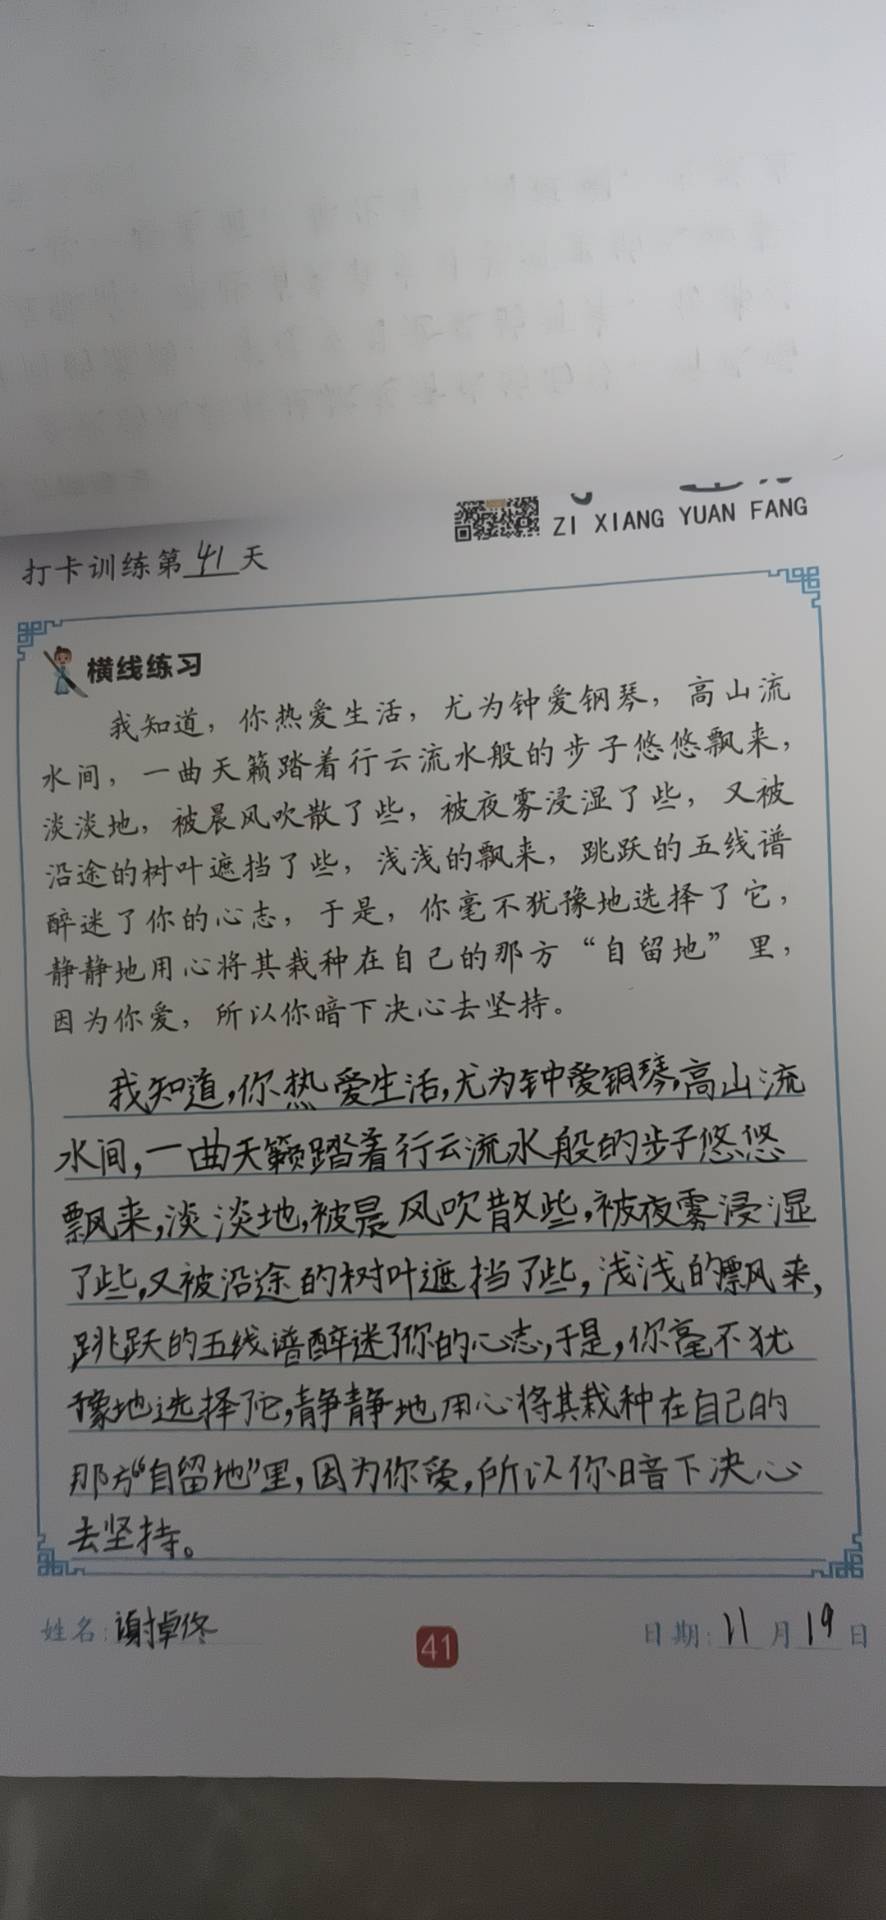 ZI XIANG YUAN FANG
打卡训练第41天
横线练习
我知道，你热爱生活，尤为钟爱钢琴，高山流
水间，一曲天籁踏着行云流水般的步子悠悠飘来，
淡淡地，被晨风吹散了些，被夜雾浸湿了些，又被
沿途的树叶遮挡了些，浅浅的飘来，跳跃的五线谱
醉迷了你的心志，于是，你毫不犹豫地选择了它，
静静地用心将其栽种在自己的那方“自留地”里，
因为你爱，所以你暗下决心去坚持。
我知道，你热爱生活，尤为钟爱钢琴，高山流
水间，一曲天籁踏着行云流水般的步子悠悠
飘来，淡淡地，被晨风吹散些，被夜雾浸湿
了些，又被沿途的树叶遮挡了些，浅浅的飘来，
跳跃的五线谱醉迷了你的心志，于是，你毫不犹
豫地选择了它，静静地用心将其栽种在自己的
那方“自留地”里，因为你爱，所以你暗下决心
去坚持。
姓名：谢卓佟
41
日期：11月19日